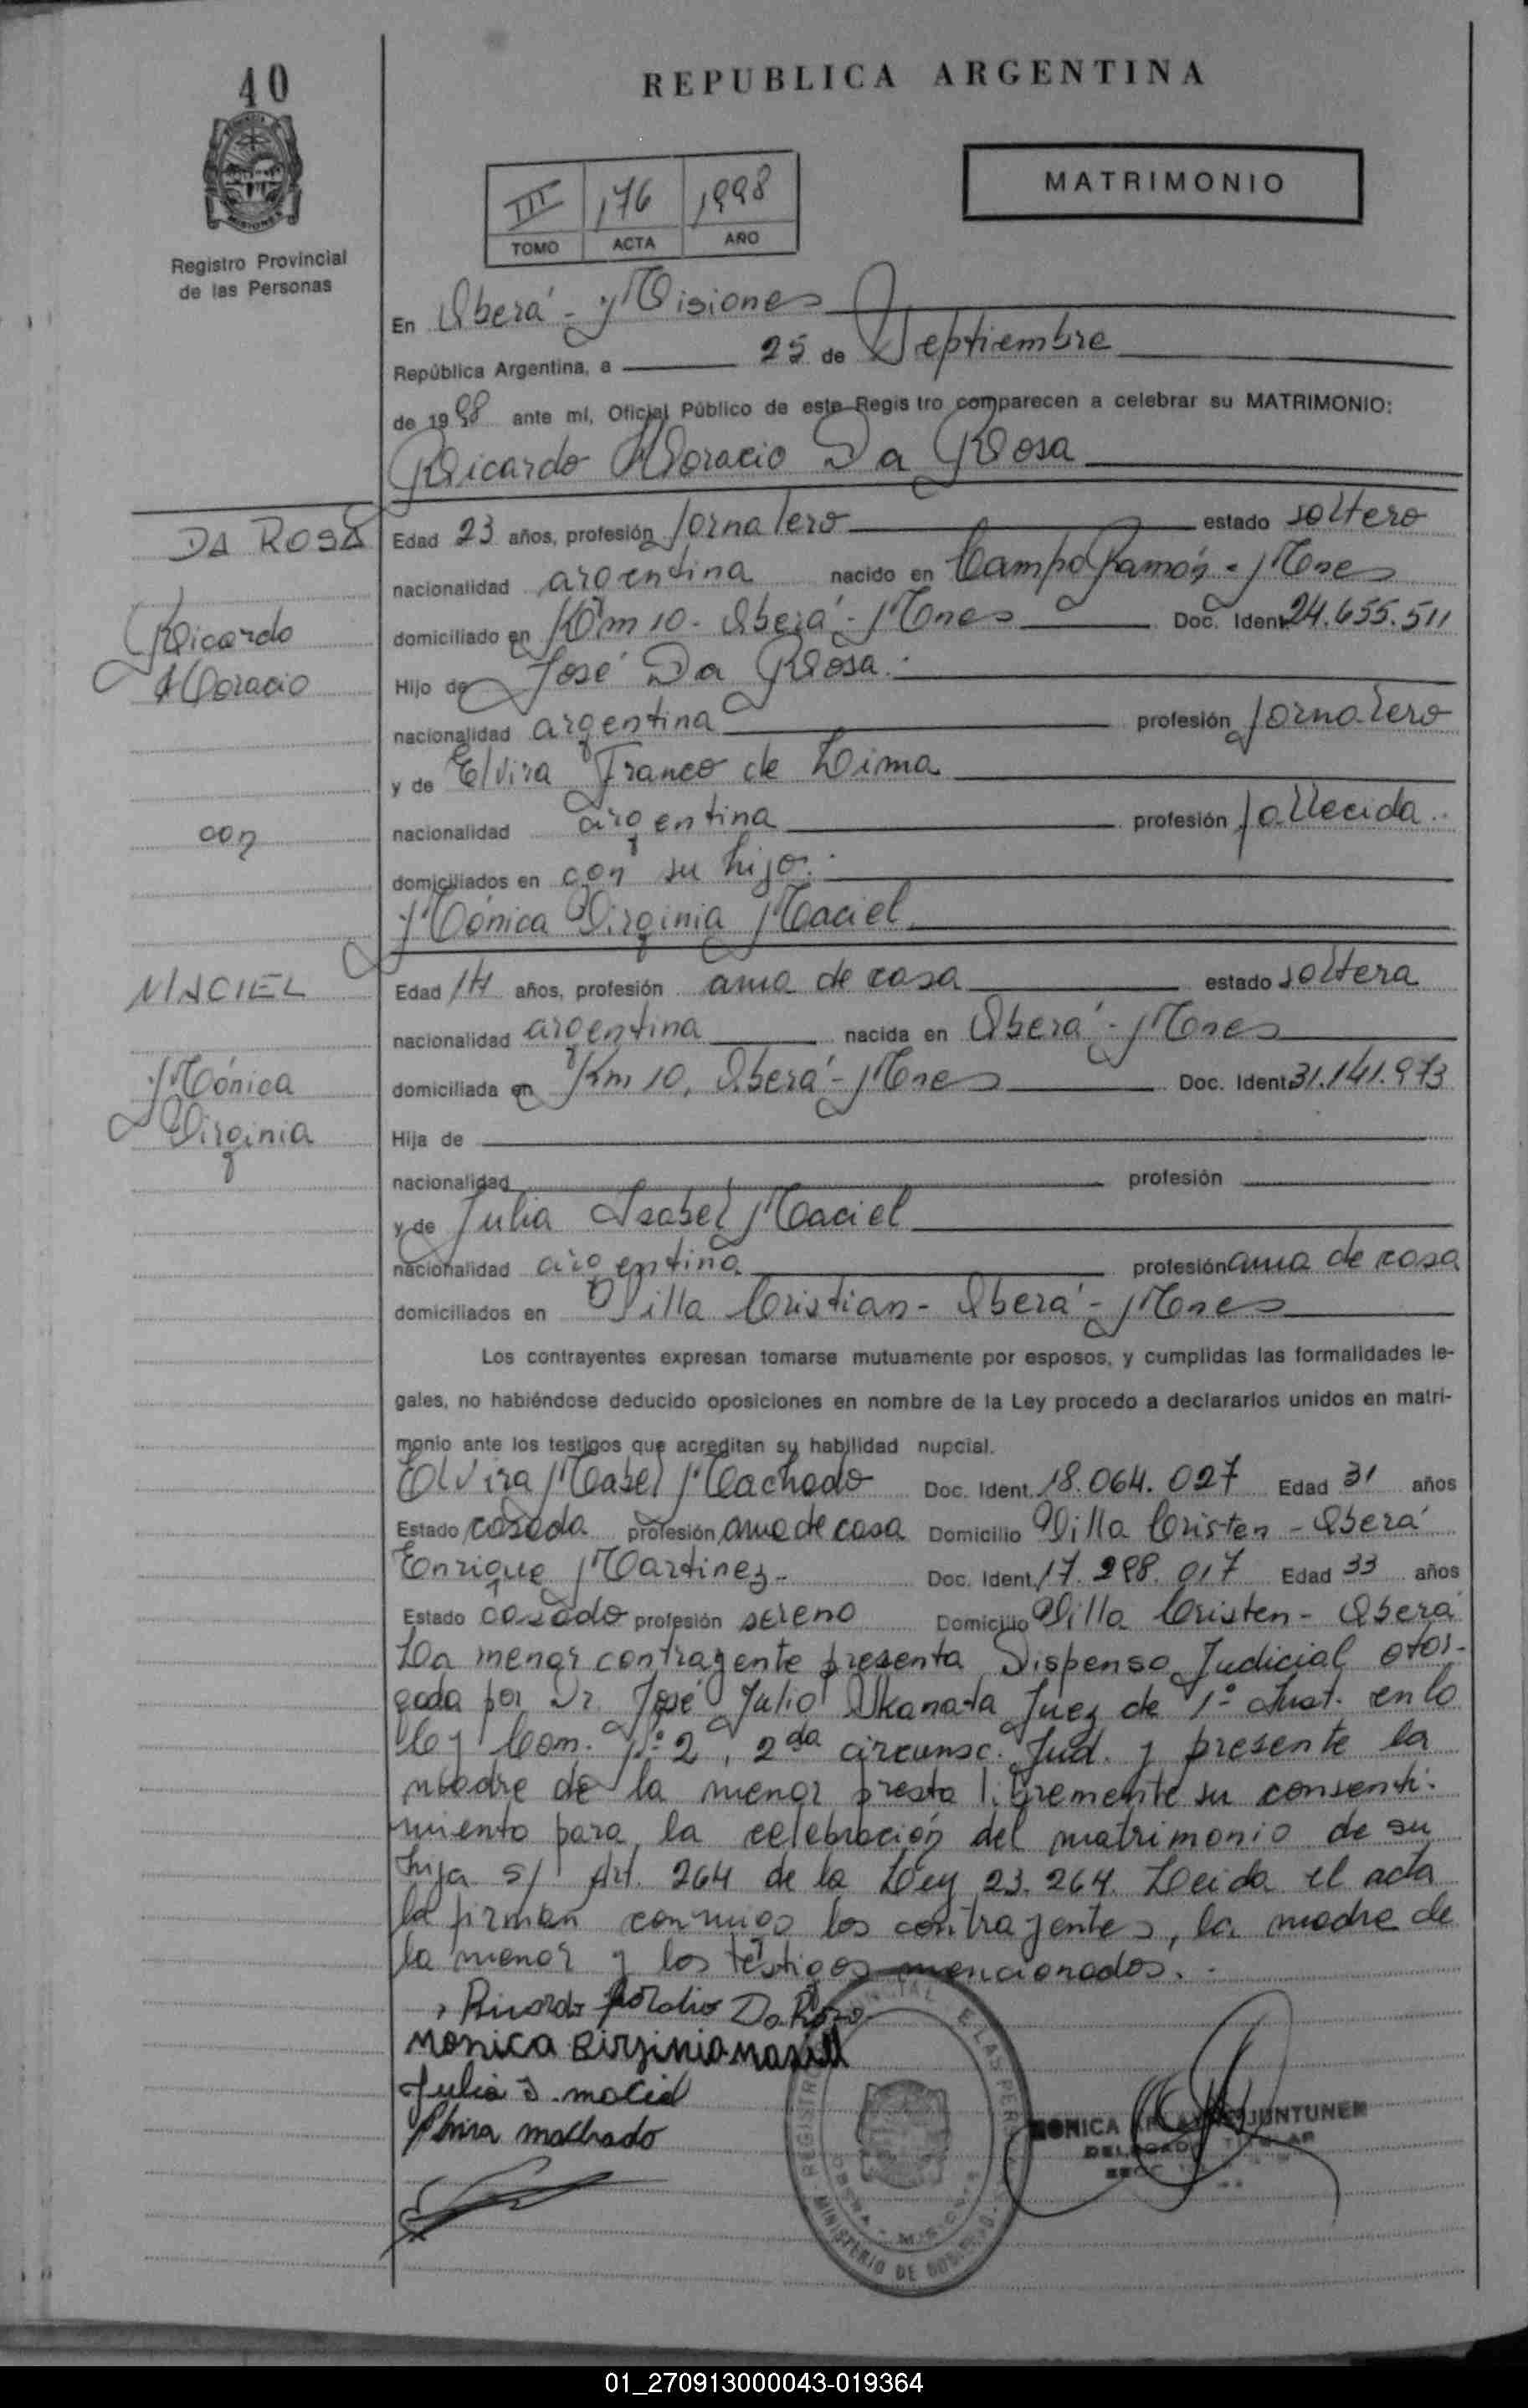 40
REPUBLICA ARGENTINA
MATRIMONIO
III 176 1998
TOMO ACTA AÑO
Registro Provincial
de las Personas
En Oberá - Misiones
República Argentina, a 25 de Septiembre
de 1998 ante mí, Oficial Público de este Registro comparecen a celebrar su MATRIMONIO:
Ricardo Horacio Da Rosa
DA ROSA
Ricardo
Horacio
con
MACIEL
Mónica
Virginia
Edad 23 años, profesión Jornalero estado soltero
nacionalidad argentina nacido en Campo Ramón - Mnes
domiciliado en Km 10 - Oberá - Mnes Doc. Ident. 24.655.511
Hijo de José Da Rosa.
nacionalidad argentina profesión Jornalero
y de Elvira Franco de Lima
nacionalidad argentina profesión fallecida.
domiciliados en con su hijo.
Mónica Virginia Maciel
Edad 14 años, profesión ama de casa estado soltera
nacionalidad argentina nacida en Oberá - Mnes
domiciliada en Km 10, Oberá - Mnes Doc. Ident. 31.141.973
Hija de
nacionalidad profesión
y de Julia Isabel Maciel
nacionalidad argentina profesión ama de casa
domiciliados en Villa Cristian - Oberá - Mnes
Los contrayentes expresan tomarse mutuamente por esposos, y cumplidas las formalidades le-
gales, no habiéndose deducido oposiciones en nombre de la Ley procedo a declararlos unidos en matri-
monio ante los testigos que acreditan su habilidad nupcial.
Elvira Mabel Machado Doc. Ident. 18.064.027 Edad 31 años
Estado casada profesión ama de casa Domicilio Villa Cristen - Oberá
Enrique Martinez - Doc. Ident. 17.298.017 Edad 33 años
Estado casado profesión sereno Domicilio Villa Cristen - Oberá
La menor contrayente presenta Dispensa Judicial otor-
gada por Dr. José Julio Juez de 1º Inst. en lo
C y Com. Nº 2, 2da circunsc. Jud. y presente la
madre de la menor presta libremente su consenti-
miento para la celebración del matrimonio de su
hija s/ Art. 264 de la Ley 23.264. Leida el acta
la firman conmigo los contrayentes, la madre de
la menor y los testigos mencionados.
Ricardo Horacio Da Roza
Monica Birginia Maciel
Julia I. maciel
Elvira machado
MINISTERIO DE GOBIERNO
MONICA JUNTUNEN
DELEGADO TITULAR
01_270913000043-019364